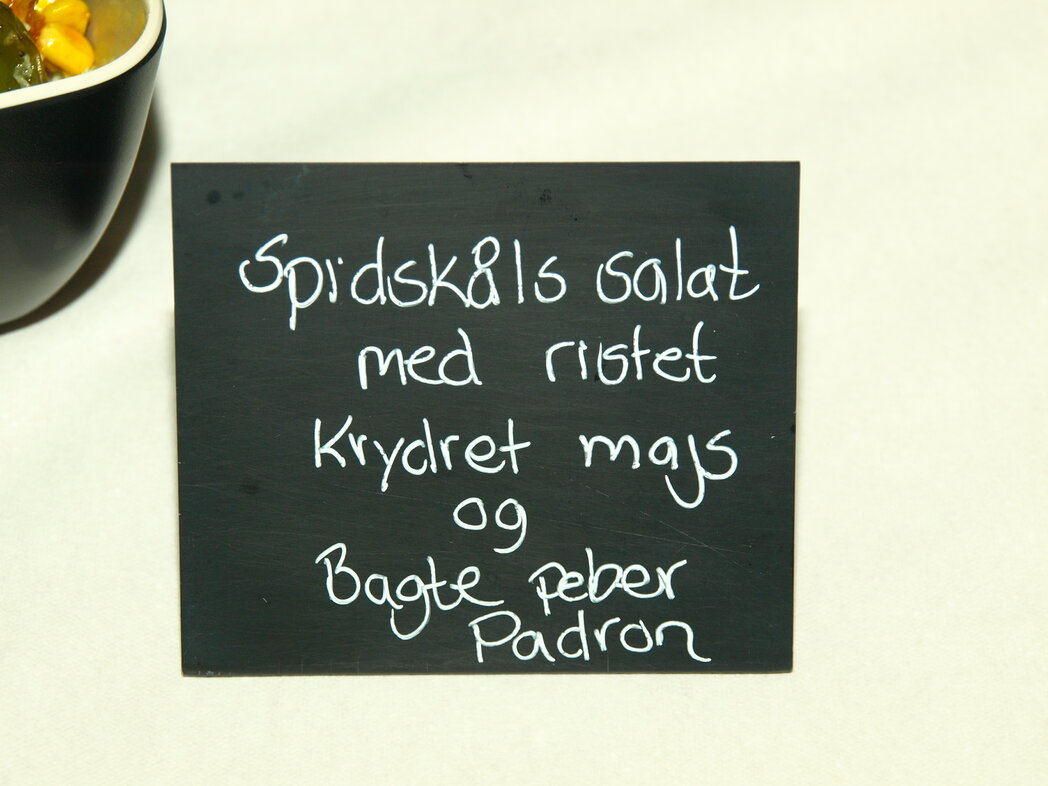 Spidskåls salat
med ristet
Krydret majs
og
Bagte peber
Padron